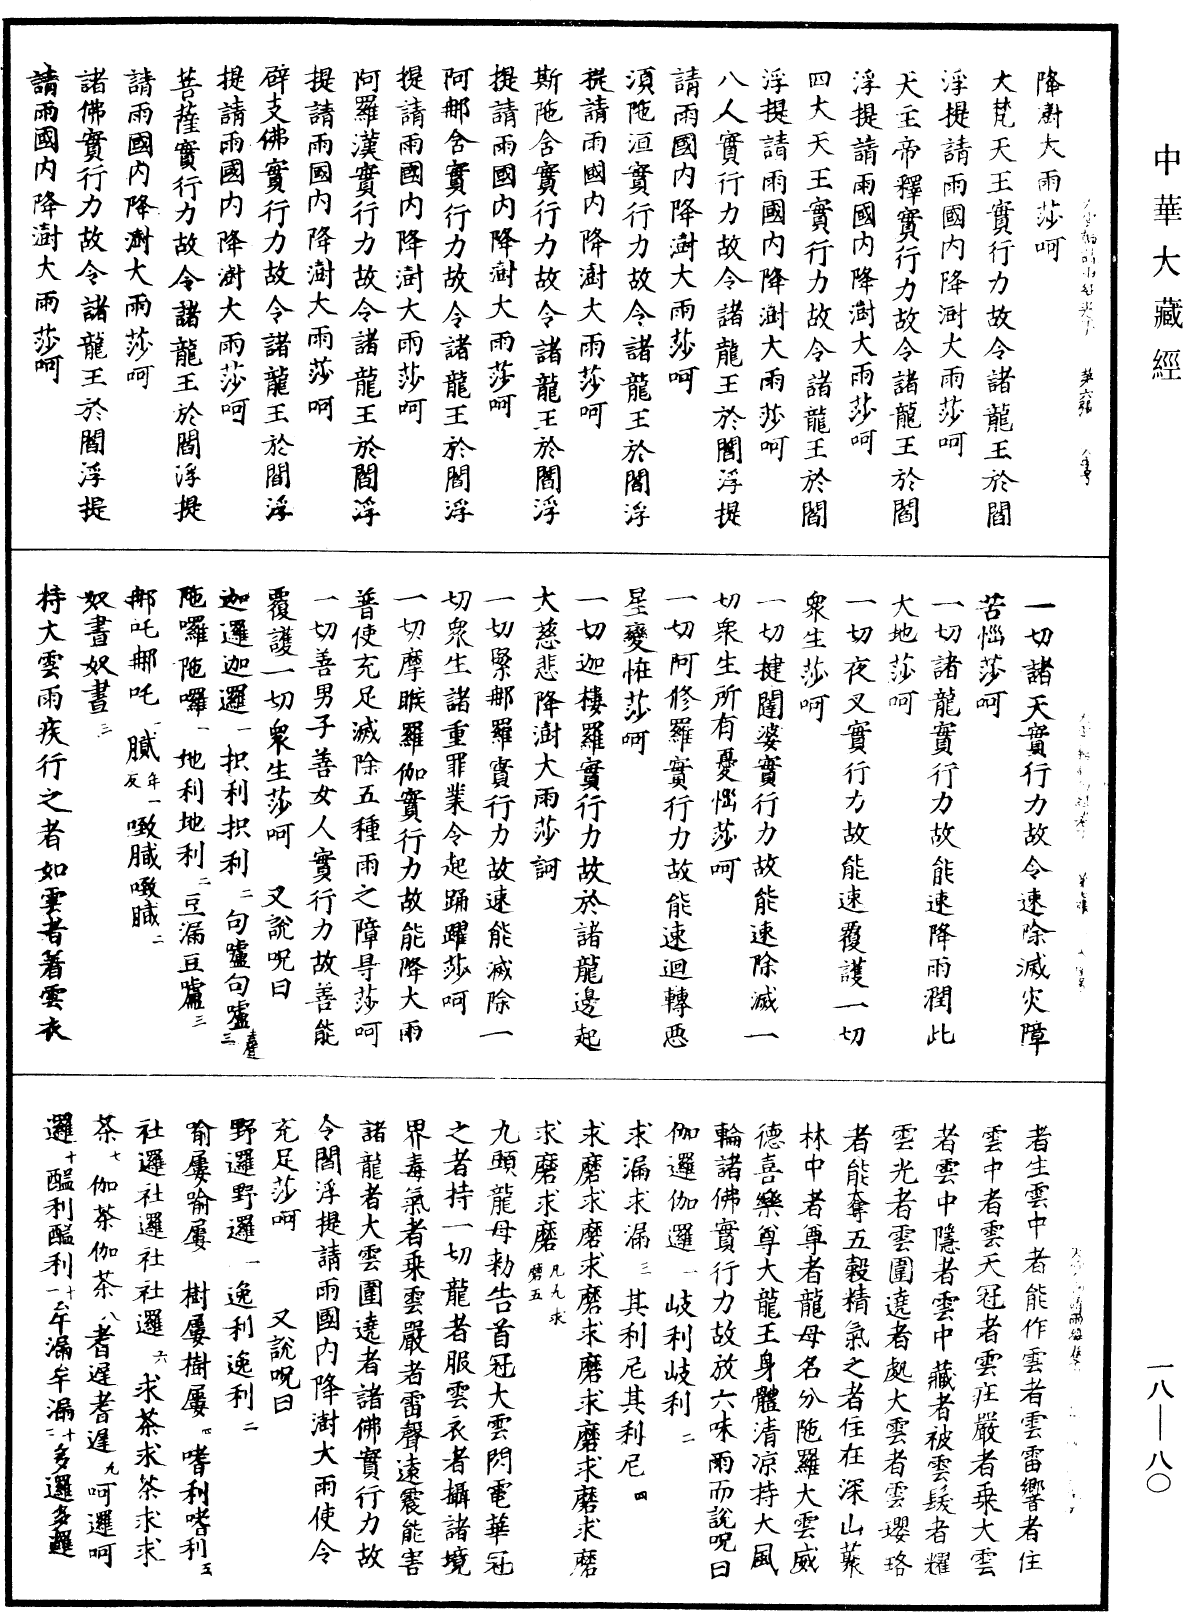 中華大藏經
降澍大雨莎呵
大梵天王實行力故令諸龍王於閻
浮提請雨國內降澍大雨莎呵
天王帝釋實行力故令諸龍王於閻
浮提請雨國內降澍大雨莎呵
四大天王實行力故令諸龍王於閻
浮提請雨國內降澍大雨莎呵
八人實行力故令諸龍王於閻浮提
請雨國內降澍大雨莎呵
須陁洹實行力故令諸龍王於閻浮
提請雨國內降澍大雨莎呵
斯陁含實行力故令諸龍王於閻浮
提請雨國內降澍大雨莎呵
阿那含實行力故令諸龍王於閻浮
提請雨國內降澍大雨莎呵
阿羅漢實行力故令諸龍王於閻浮
提請雨國內降澍大雨莎呵
辟支佛實行力故令諸龍王於閻浮
提請雨國內降澍大雨莎呵
菩薩實行力故令諸龍王於閻浮提
請雨國內降澍大雨莎呵
諸佛實行力故令諸龍王於閻浮提
請雨國內降澍大雨莎呵
一切諸天實行力故令速除滅災障
苦惱莎呵
一切諸龍實行力故能速降雨潤此
大地莎呵
一切夜叉實行力故能速覆護一切
衆生莎呵
一切揵闥婆實行力故能速除滅一
切衆生所有憂惱莎呵
一切阿修羅實行力故能速迴轉惡
星變恠莎呵
一切迦樓羅實行力故於諸龍邊起
大慈悲降澍大雨莎訶
一切緊那羅實行力故速能滅除一
切衆生諸重罪業令起踊躍莎呵
一切摩睺羅伽實行力故能降大雨
普使充足滅除五種雨之障㝵莎呵
一切善男子善女人實行力故善能
覆護一切衆生莎呵　又說呪曰
迦邏迦邏一抧利抧利二句嚧句嚧三
陁囉陁囉一地利地利二豆漏豆嚧三
那吒那吒一膩年一反噉膱噉膱二
奴晝奴晝三
持大雲雨疾行之者如雲者著雲衣
者生雲中者能作雲者雲雷響者住
雲中者雲天冠者雲莊嚴者乘大雲
者雲中隱者雲中藏者被雲髮者耀
雲光者雲圍遶者處大雲者雲瓔珞
者能奪五穀精氣之者住在深山藂
林中者尊者龍母名分陁羅大雲威
德喜樂尊大龍王身體清涼持大風
輪諸佛實行力故放六味雨而說呪曰
伽邏伽邏一岐利岐利二
求漏求漏三其利尼其利尼四
求磨求磨求磨求磨求磨求磨求磨
求磨求磨凡九求磨五
九頭龍母勑告首冠大雲閃電華冠
之者持一切龍者服雲衣者攝諸境
界毒氣者乘雲嚴者雷聲遠震能害
諸龍者大雲圍遶者諸佛實行力故
令閻浮提請雨國內降澍大雨使令
充足莎呵　又說呪曰
野邏野邏一逸利逸利二
喻屢喻屢　樹屢樹屢四嗜利嗜利五
社邏社邏社社邏六求茶求茶求求
茶七伽茶伽茶八耆遲耆遲九呵邏呵
邏十醯利醯利十一牟漏牟漏十二多邏多邏
一八—八〇